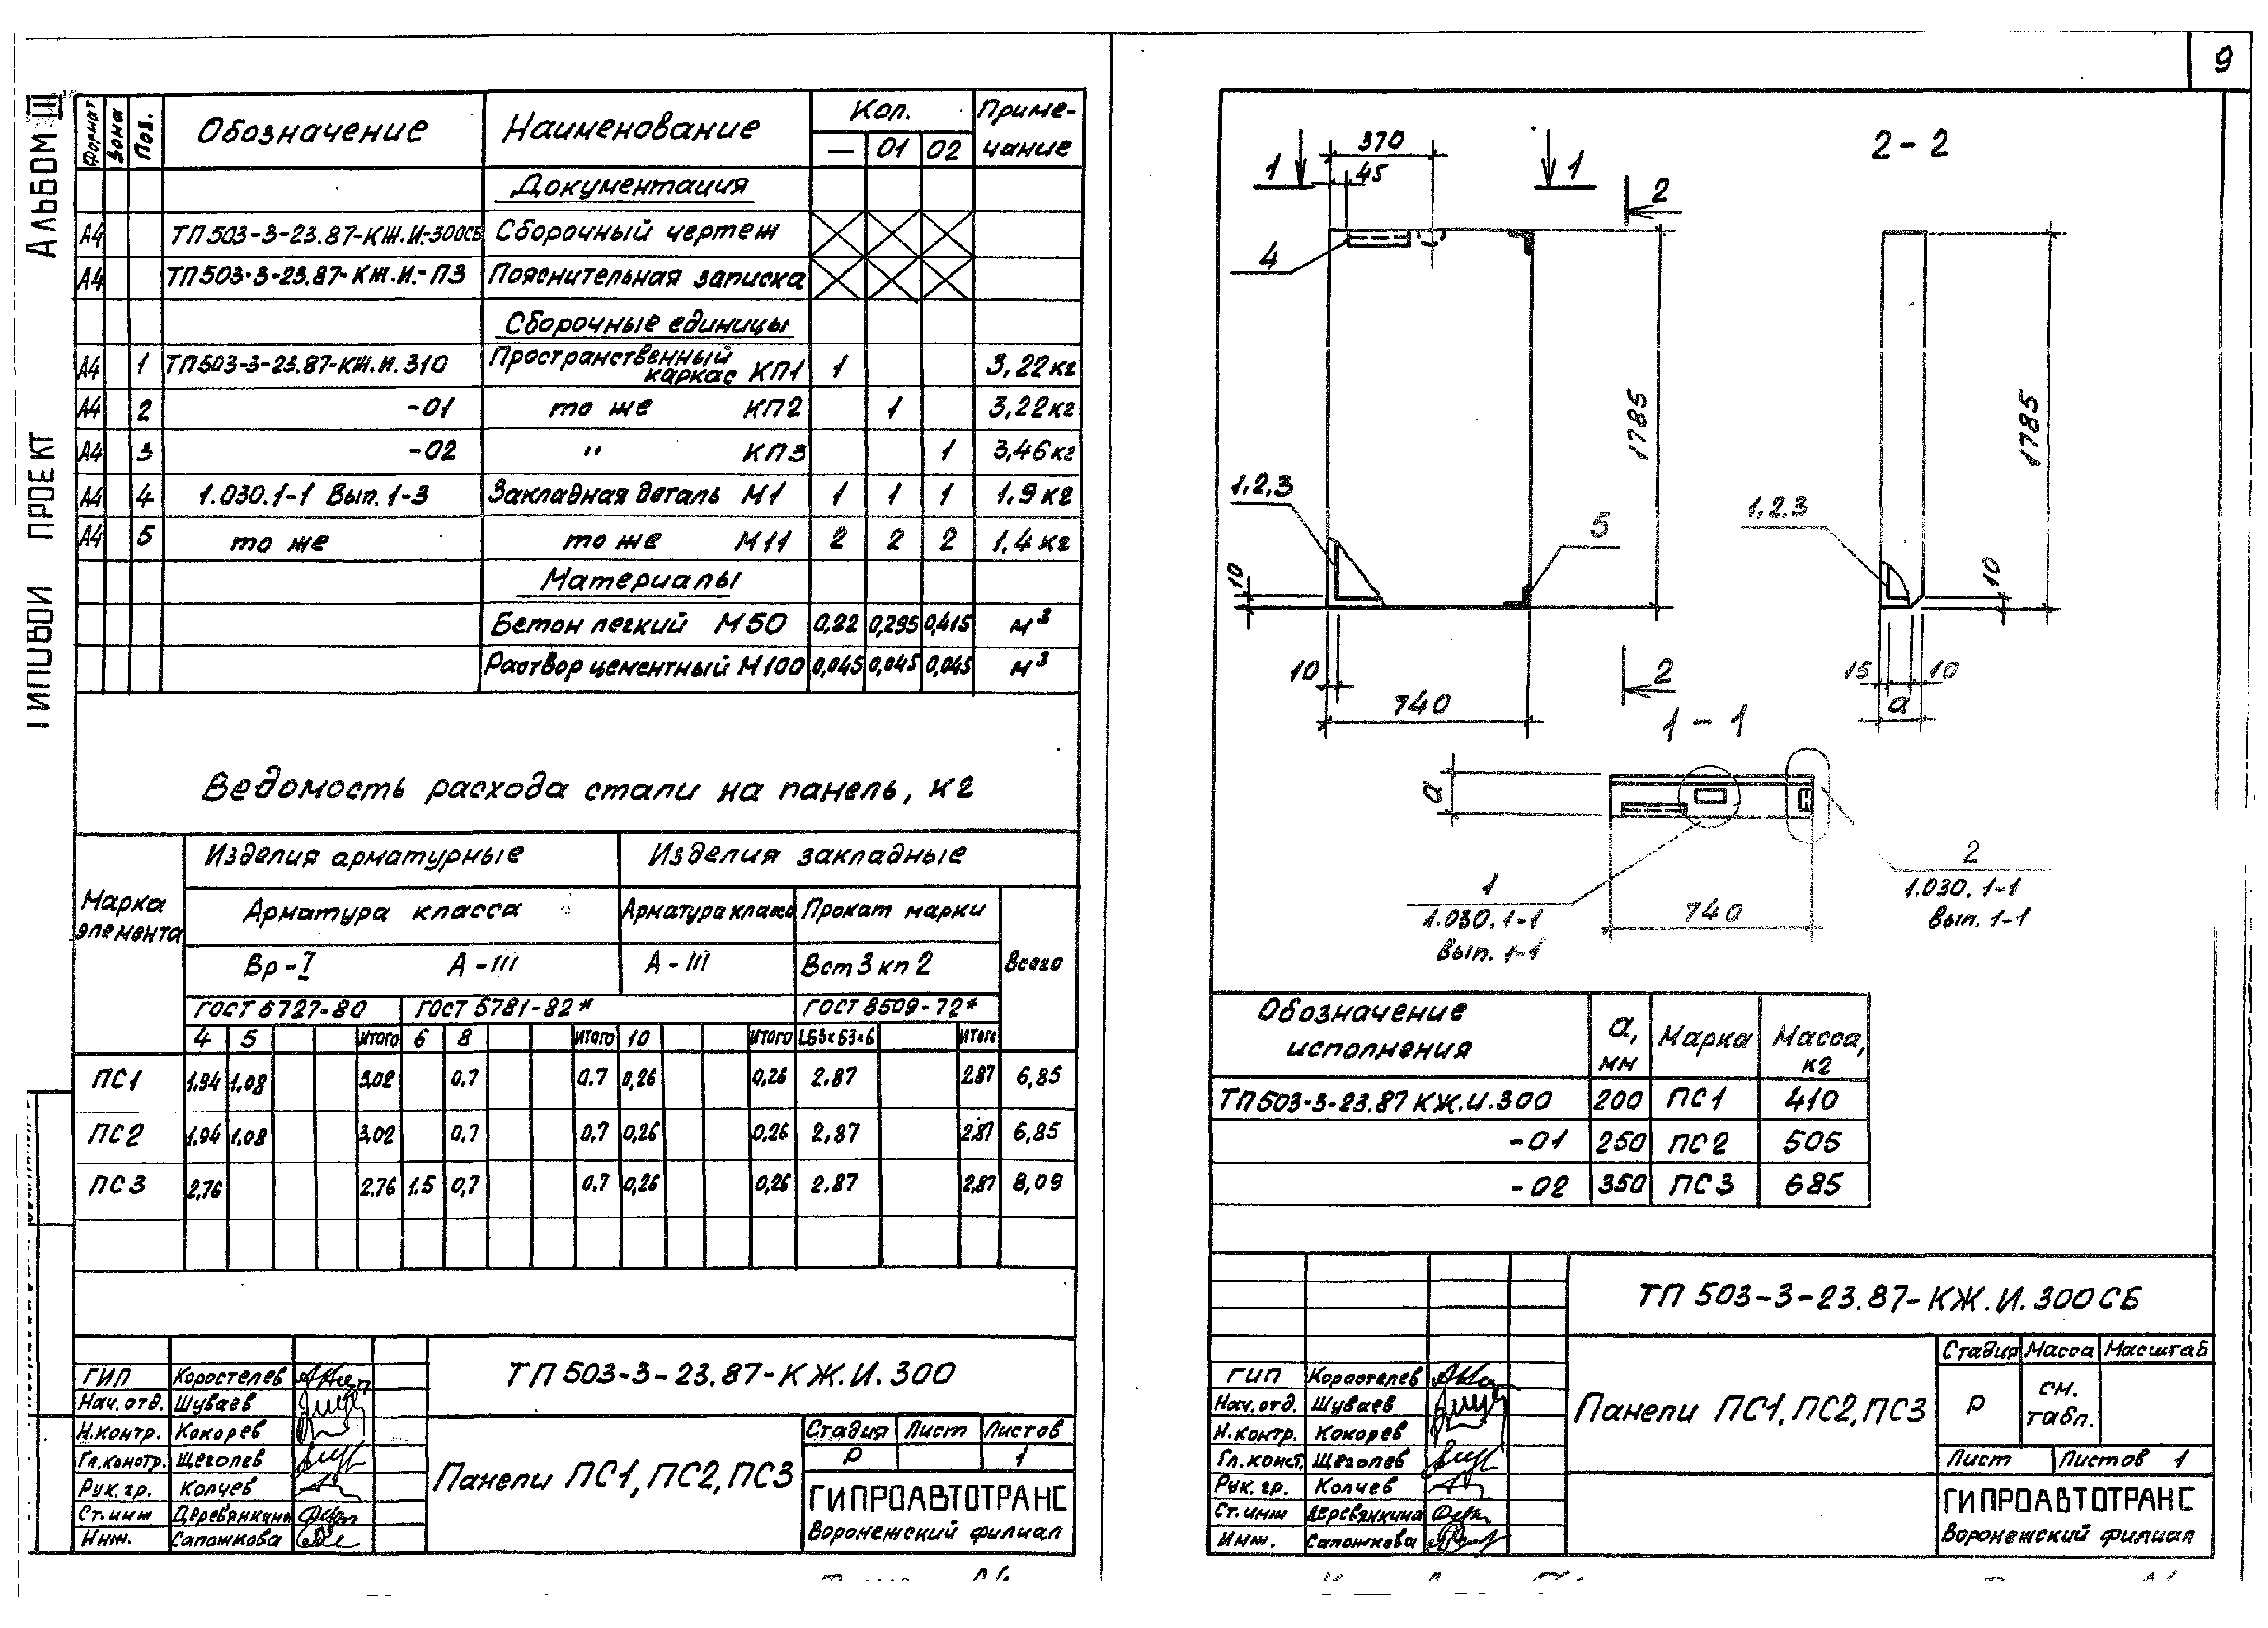 9
АЛЬБОМ III
ТИПОВОЙ ПРОЕКТ
Формат Зона Поз. Обозначение Наименование Кол. Приме-
— 01 02 чание
Документация
А4 ТП503-3-23.87-КЖ.И-300СБ Сборочный чертеж
А4 ТП503-3-23.87-КЖ.И.-ПЗ Пояснительная записка
Сборочные единицы
А4 1 ТП503-3-23.87-КЖ.И.310 Пространственный
каркас КП1 1 3,22кг
А4 2 -01 то же КП2 1 3,22кг
А4 3 -02 " КП3 1 3,46кг
А4 4 1.030.1-1 Вып.1-3 Закладная деталь М1 1 1 1 1.9кг
А4 5 то же то же М11 2 2 2 1.4кг
Материалы
Бетон легкий М50 0,22 0,295 0,415 м³
Раствор цементный М100 0,045 0,045 0,045 м³
Ведомость расхода стали на панель, кг
Марка элемента
Изделия арматурные Изделия закладные
Арматура класса Арматура класса Прокат марки
Вр-I А-III А-III Вст3кп2 Всего
ГОСТ 6727-80 ГОСТ 5781-82* ГОСТ 8509-72*
4 5 Итого 6 8 Итого 10 Итого L63×63×6 Итого
ПС1 1.94 1,08 3,02 0.7 0.7 0,26 0,26 2.87 2,87 6,85
ПС2 1.94 1,08 3,02 0.7 0,7 0,26 0,26 2,87 2,87 6,85
ПС3 2,76 2,76 1.5 0,7 0.7 0,26 0,26 2.87 2,87 8,09
ТП503-3-23.87-КЖ.И.300
ГИП Коростелев
Нач.отд. Шуваев
Н.контр. Кокорев
Гл.констр. Щеголев
Рук.гр. Колчев
Ст.инж Деревянкина
Инж. Сапожкова
Панели ПС1,ПС2,ПС3
Стадия Лист Листов
Р 1
ГИПРОАВТОТРАНС
Воронежский филиал
1 1 370
45
2
4
2-2
1785
1785
1,2,3
1,2,3
5
10
10
10
740
2
15 10
а
1-1
а
740
1
1.030.1-1
Вып.1-1
2
1.030.1-1
Вып.1-1
Обозначение
исполнения а, мм Марка Масса, кг
ТП503-3-23.87 КЖ.И.300 200 ПС1 410
-01 250 ПС2 505
-02 350 ПС3 685
ТП 503-3-23.87-КЖ.И.300СБ
ГИП Коростелев
Нач.отд. Шуваев
Н.контр. Кокорев
Гл.конст. Щеголев
Рук.гр. Колчев
Ст.инж Деревянкина
Инж. Сапожкова
Панели ПС1,ПС2,ПС3
Стадия Масса Масштаб
Р см.
табл.
Лист Листов 1
ГИПРОАВТОТРАНС
Воронежский филиал